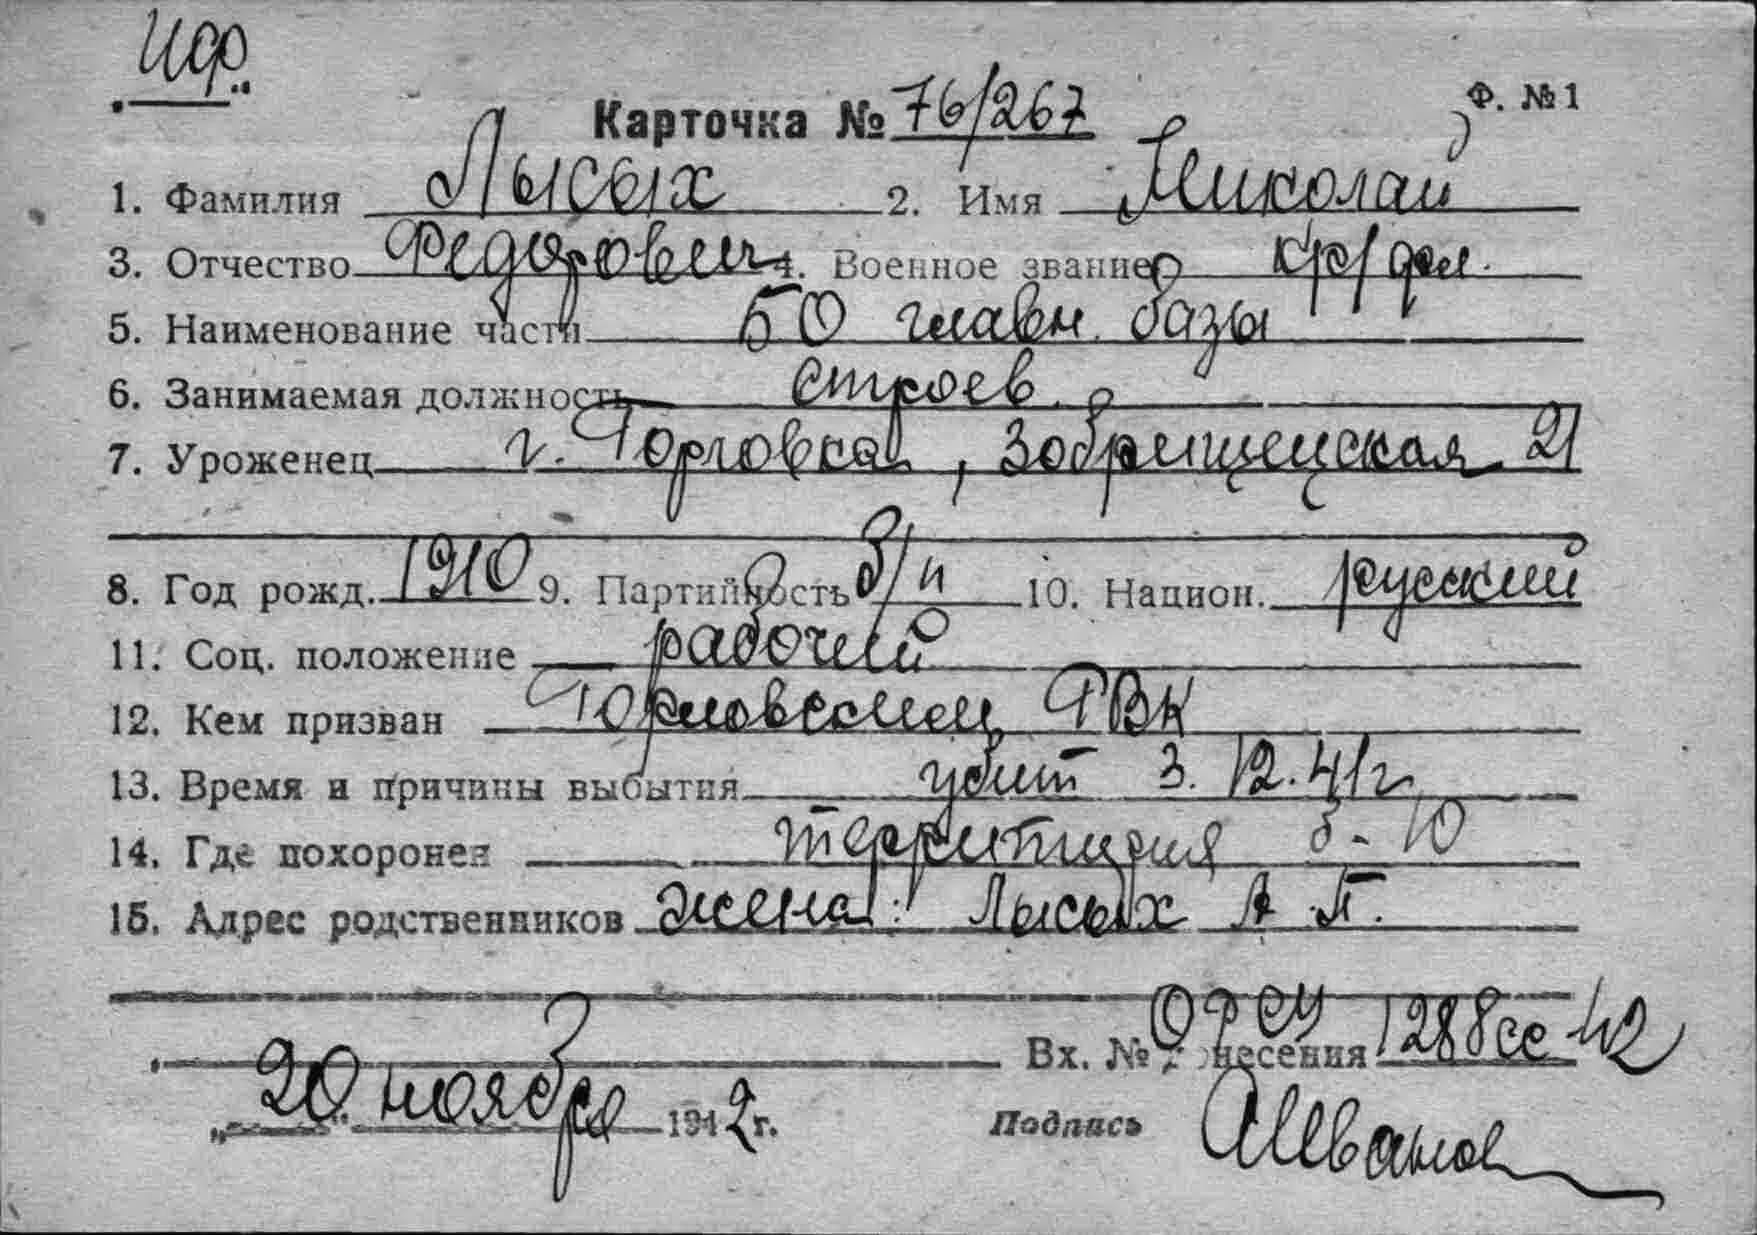 Иср.
Ф. № 1
Карточка № 76/267
1. Фамилия Лысых 2. Имя Николай
3. Отчество Федорович 4. Военное звание кр/фл.
5. Наименование части БО главн. базы
6. Занимаемая должность строев.
7. Уроженец г. Горловка, 21
8. Год рожд. 1910 9. Партийность б/п 10. Национ. русский
11. Соц. положение рабочий
12. Кем призван Горловским ГВК
13. Время и причины выбытия убит 3.12.41г
14. Где похоронен территория
15. Адрес родственников жена: Лысых А.П.
ОРСУ
Вх. № донесения 1288сс 42
20 ноября 1942 г. Подпись АИванов